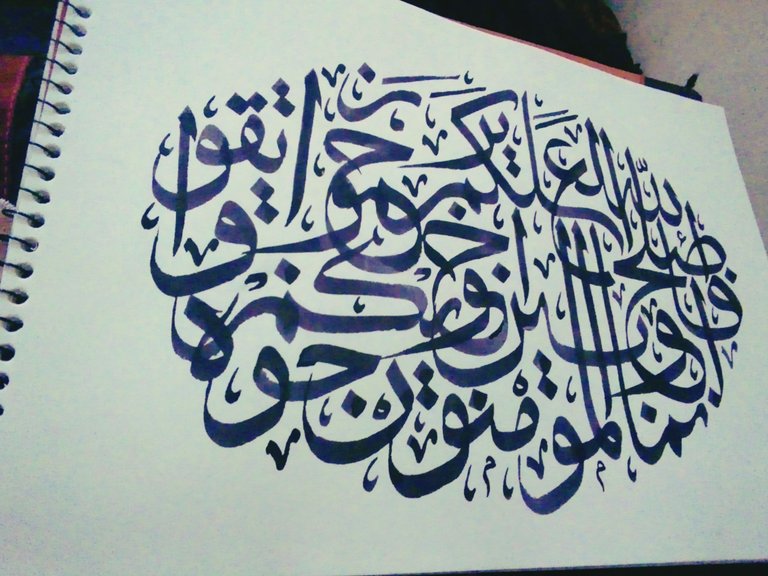 إنما المؤمنون إخوة
فأصلحوا بين أخويكم
واتقوا الله لعلكم ترحمون